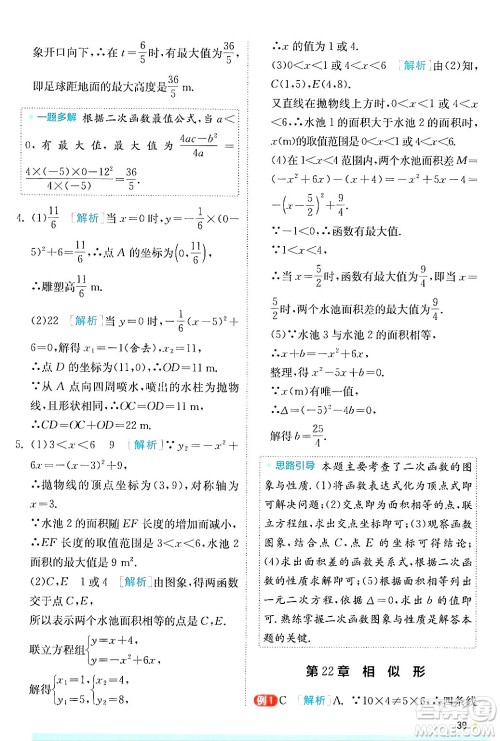 象开口向下,∴在 t=6/5 时,y 有最大值为 36/5,
即足球距地面的最大高度是 36/5 m.
一题多解 根据二次函数最值公式,当 a<
0,有最大值,最大值为 (4ac-b²)/4a =
(4×(-5)×0-12²)/(4×(-5)) = 36/5.
4. (1) 11/6 [解析] 当 x=0 时,y=-1/6(0-
5)²+6=11/6,∴点 A 的坐标为(0,11/6),
∴雕塑高 11/6 m.
(2)22 [解析] 当 y=0 时,-1/6(x-5)²+
6=0,解得 x₁=-1(舍去),x₂=11,
∴点 D 的坐标为(11,0),∴OD=11 m.
∵从点 A 向四周喷水,喷出的水柱为抛物
线,且形状相同,∴OC=OD=11 m,
∴CD=OC+OD=22 m.
5. (1)3<x<6 9 [解析] ∵y₂=-x²+
6x=-(x-3)²+9,
∴抛物线的顶点坐标为(3,9),对称轴为
x=3.
∵水池 2 的面积随 EF 长度的增加而减小,
∴EF 长度的取值范围是 3<x<6,水池 2 面
积的最大值是 9 m².
(2)C,E 1或4 [解析] 由图象,得两函数
交于点 C,E,
所以表示两个水池面积相等的点是 C,E.
联立方程组{y=x+4, y=-x²+6x,
解得{x=1, y=5 或{x=4, y=8,
∴x 的值为 1 或 4.
(3)0<x<1 或 4<x<6 [解析] 由(2)知,
C(1,5),E(4,8).
又直线在抛物线上方时,0<x<1 或 4<x<6,
∴水池 1 的面积大于水池 2 的面积时,
x(m)的取值范围是 0<x<1 或 4<x<6.
(4)在 1<x<4 时,两个水池面积差 M=
(-x²+6x)-(x+4)=-x²+5x-4=
-(x-5/2)²+9/4.
∵-1<0,∴函数有最大值.
∵1<x<4,
∴当 x=5/2 时,函数有最大值,为 9/4,即当 x=
5/2 时,两个水池面积差的最大值为 9/4 m².
(5)∵水池 3 与水池 2 的面积相等,
∴x+b=-x²+6x,
整理,得 x²-5x+b=0.
∵x 有唯一值,∴Δ=(-5)²-4b=0,
解得 b=25/4.
思路引导 本题主要考查了二次函数的图
象与性质.(1)将函数表达式化为顶点式即
可解决问题;(2)交点即为面积相等的点,
联立方程组,求出交点坐标即可;(3)观察函数
图象,结合点 C、点 E 的坐标可得出结果;
(4)求出面积差的函数关系式,根据二次函
数的性质求解即可;(5)面积相等列出
一元二次方程,依据 Δ=0,求出 b 的值即
可.熟练掌握二次函数图象与性质是解答本
题的关键.
第 22 章 相 似 形
例1 C [解析] A. ∵10×4≠5×6,∴四条线
39